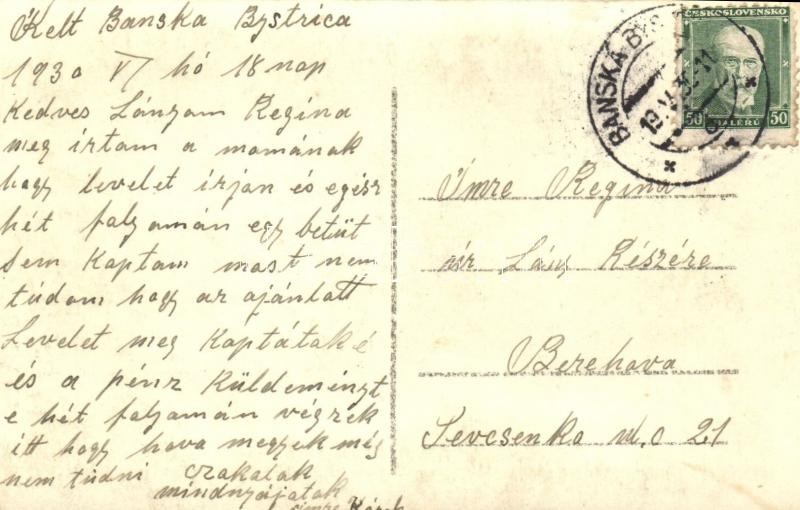 Kelt Banska Bystrica
1930 VI hó 18 nap
Kedves Lányom Regina
meg irtam a momának
hogy levelet irjan és egész
hét folyamán egy betüt
sem Kaptam most nem
tudom hogy az ajánlott
Levelet meg Kaptátak é
és a pénz Küldeményt
e hét folyamán végzek
itt hogy hova megyek még
nem tudni czakalak
mindnyájatak
Imre
ČESKOSLOVENSKO
50 HALÉŘŮ 50
BANSKÁ BYS
Imre Regina
úr Lány Részére
Berehova
Sevcsenka ul. c 21